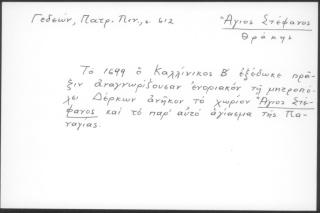 Γεδεών, Πατρ. Πιν., σ. 612
Ἅγιος Στέφανος
Θράκης
Τὸ 1699 ὁ Καλλίνικος Β΄ ἐξέδωκε πρᾶ-
ξιν ἀναγνωρίζουσαν ἐνοριακόν τῇ μητροπό-
λει Δέρκων ἀνῆκον τὸ χωρίον Ἅγιος Στέ-
φανος καὶ τὸ παρ' αὐτό ἁγίασμα τῆς Πα-
ναγίας.